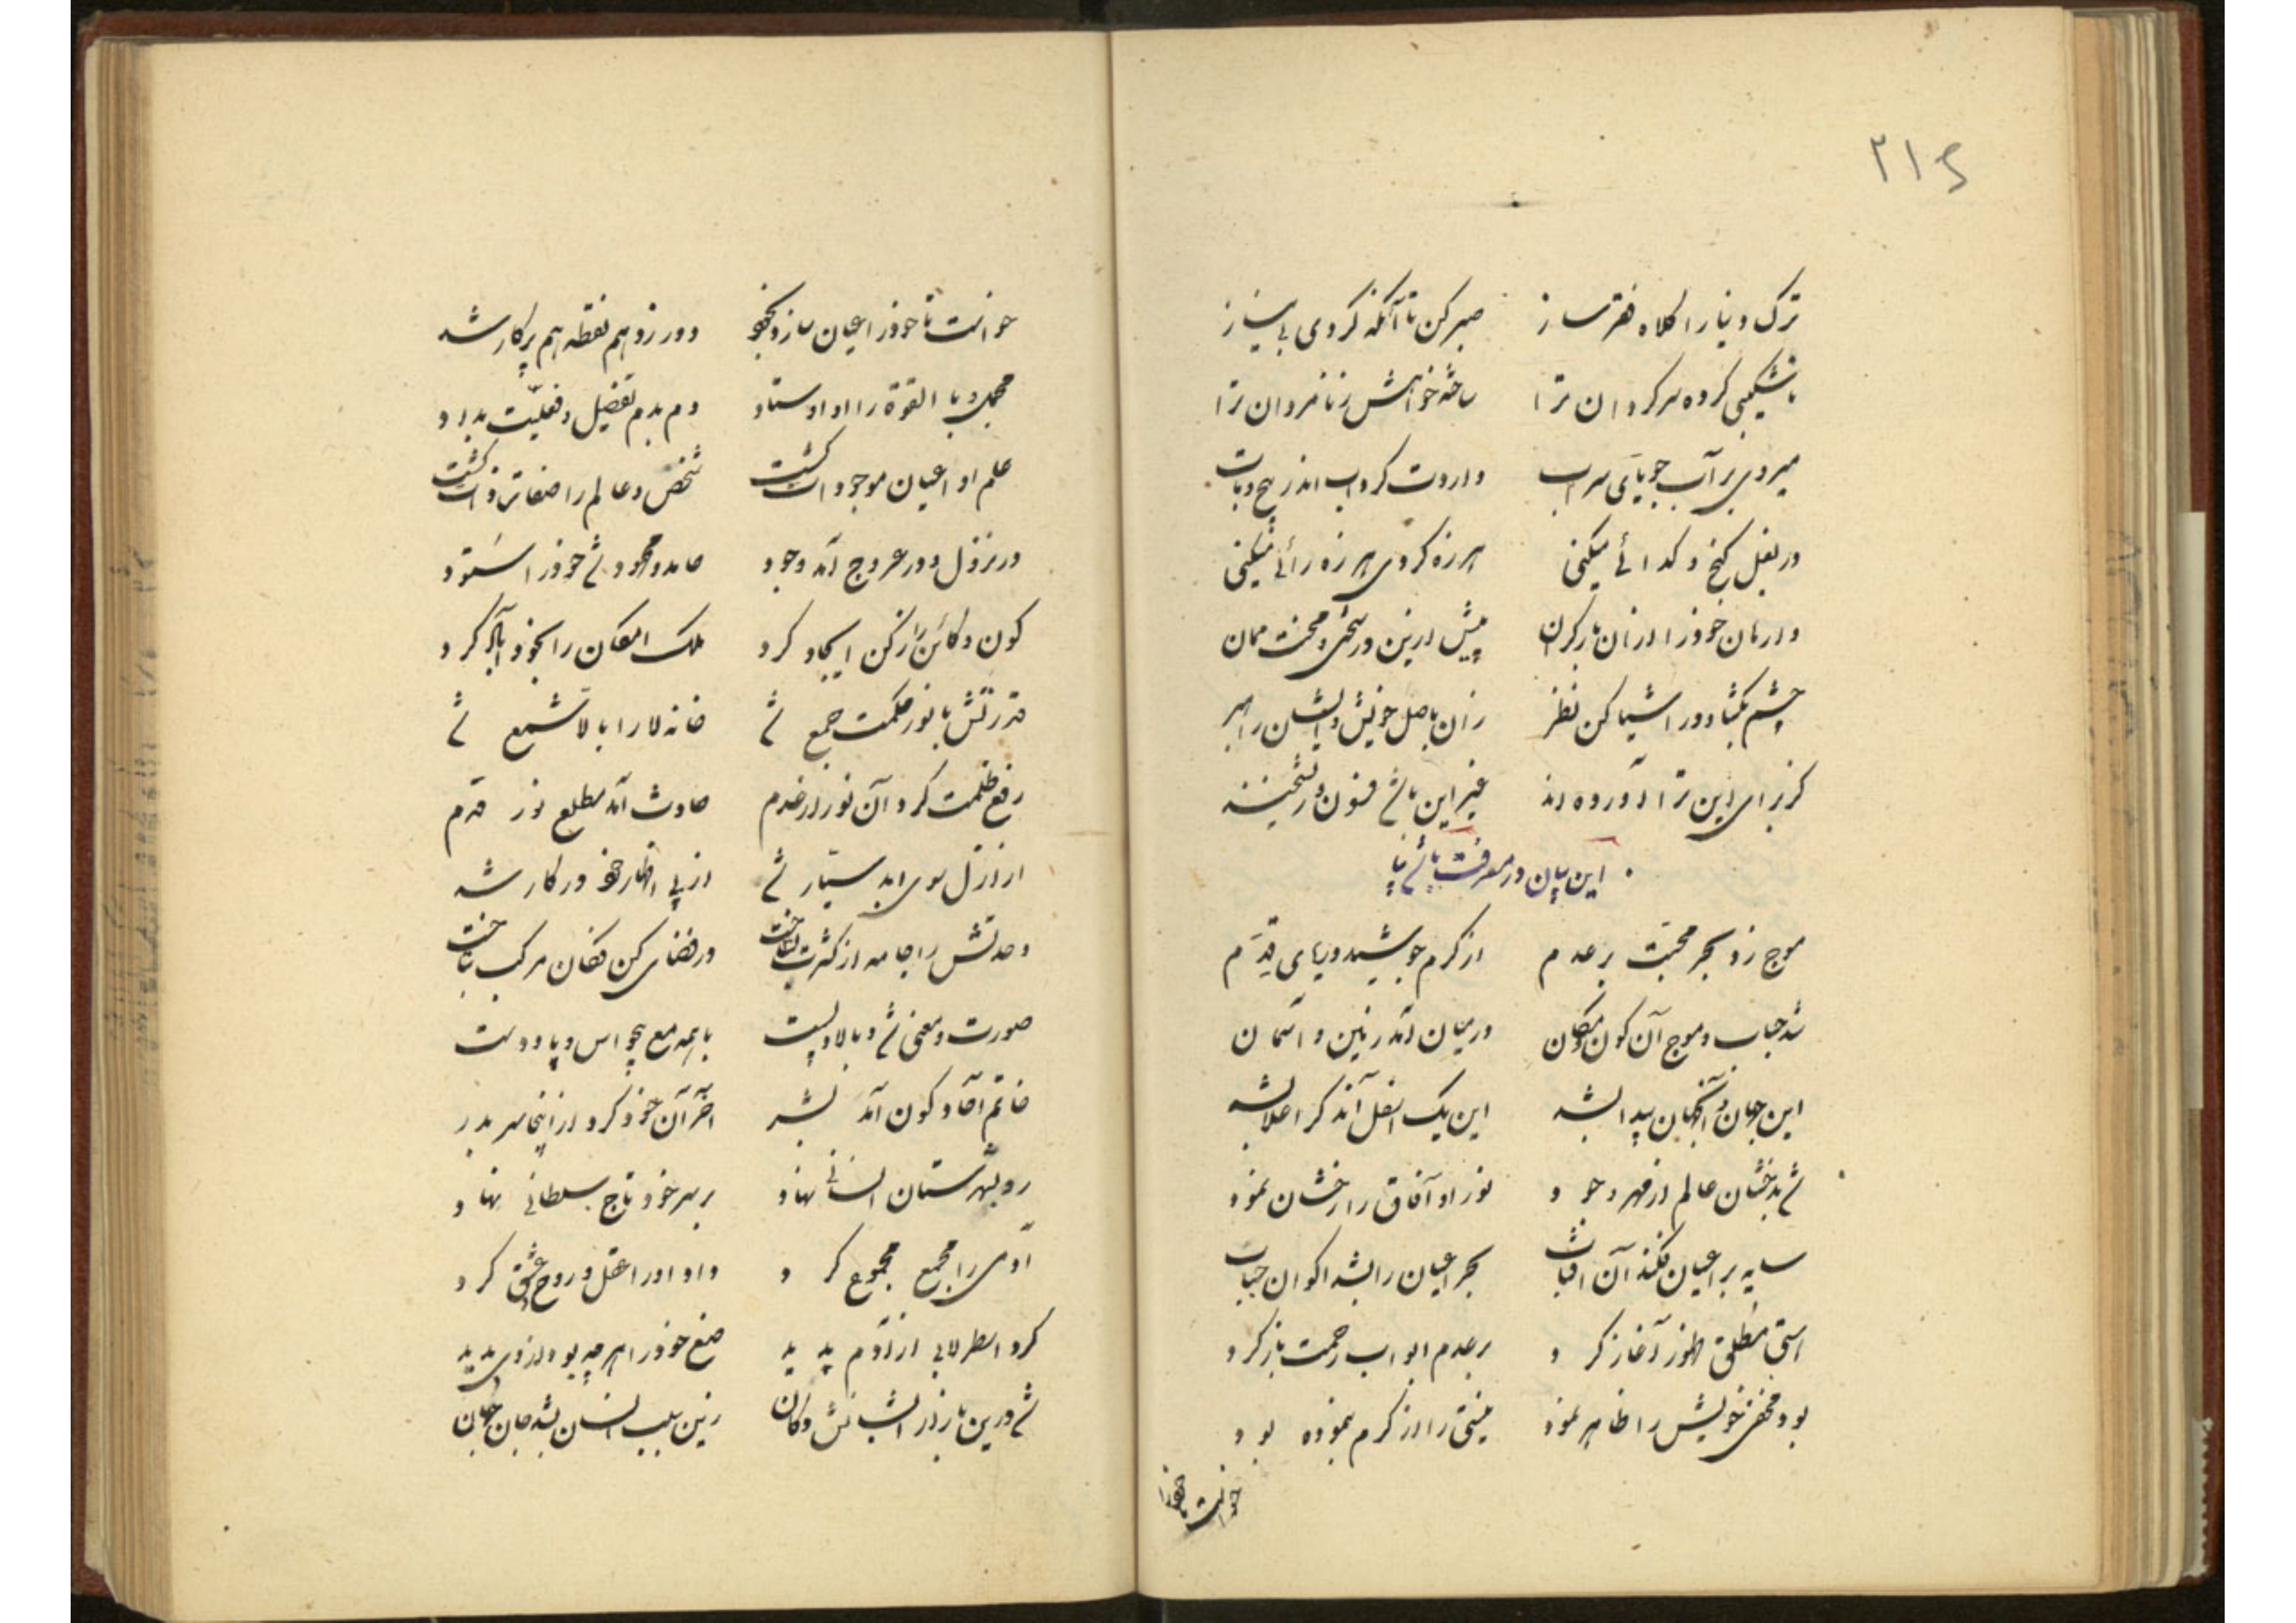 ۲۱۶
ترک دنیا را کلاه فقر ساز صبر کن تا آنکه گردی بی نیاز
ناشکیبی کرده سرگردان ترا ساخته خواهش زنامردان ترا
میروی بر آب جویای سراب واردت گرداب اندر پیچ و تاب
در بغل گنج و گدائے میکنی هرزه گردی هرزه رائے میکنی
وارهان خود را ازان بار گران پیش ازین در سختی و محنت ممان
چشم بگشا و در اشیا کن نظر زان باصل خویش و ایشان راه بر
کز برای این ترا آورده اند غیر این باشد فسون و ریشخند
این بیان در معرفت باشد بیا
موج زد بحر محبت بر عدم از کرم جوشید دریای قِدَم
شد حباب و موج آن کون و مکان در میان آمد زمین و آسمان
این جهان و آنجهان پیدا بشد این یک اسفل آندگر اعلا بشد
شد بدخشان عالم از مهر وجود نور او آفاق را رخشان نمود
سایه بر اعیان فکند آن آفتاب بحر اعیان را بشد اکوان حباب
هستی مطلق ظهور آغاز کرد بر عدم ابواب رحمت باز کرد
بود مخفی خویش را ظاهر نمود نیستی را از کرم بنموده بود
خواست تا خود را
خواست تا خود را عیان سازد بخود دور زد هم نقطه هم پرگار شد
مجمل و بالقوة را او اوستاد دم بدم تفصیل و فعلیّت بداد
علم او اعیان موجودات گشت شخص و عالم را صفات و ذات گشت
در نزول و در عروج آمد وجود حامد و محمود شد خود را ستود
کون و کائن را ز کن ایجاد کرد ملک امکان را بخود آباد کرد
قدرتش با نور حکمت جمع شد خانه لا را با لا شمع شد
رفع ظلمت کرد آن نور از عدم حادث آمد مطلع نور قدم
از ازل سوی ابد سیّار شد از پی اظهار خود در کار شد
وحدتش را جامه از کثرت بساخت در فضای کن فکان مرکب بتاخت
صورت و معنی شد و بالا و پست با همه مع چو اس و پا و دست
خاتم آحاد کون آمد بشر آخر آن خود کرد از اینجا سر بدر
رو بشهرستان انسانی نهاد بر سر خود تاج سلطانی نهاد
آدمی را مجمع مجموع کرد داد او را عقل و روح عشق کرد
کرد اسطرلابی از آدم پدید صنع خود را هر چه بود از وی بدید
شد درین بازار انسانش دکان زین سبب انسان بشد جان جهان